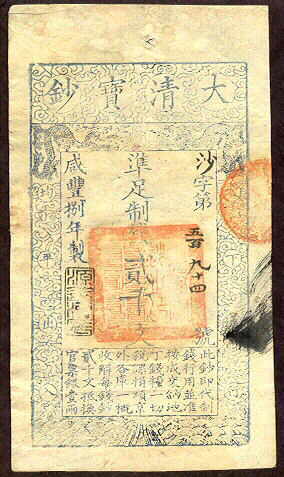 大清寶鈔
沙字第五百九十四號
準足制錢貳千文
咸豐捌年製
此鈔即代制
錢行用並准
按成交納地
丁錢糧一切
稅課捐項京
外各庫一概
收解每錢鈔
貳千文抵換
官票銀壹兩